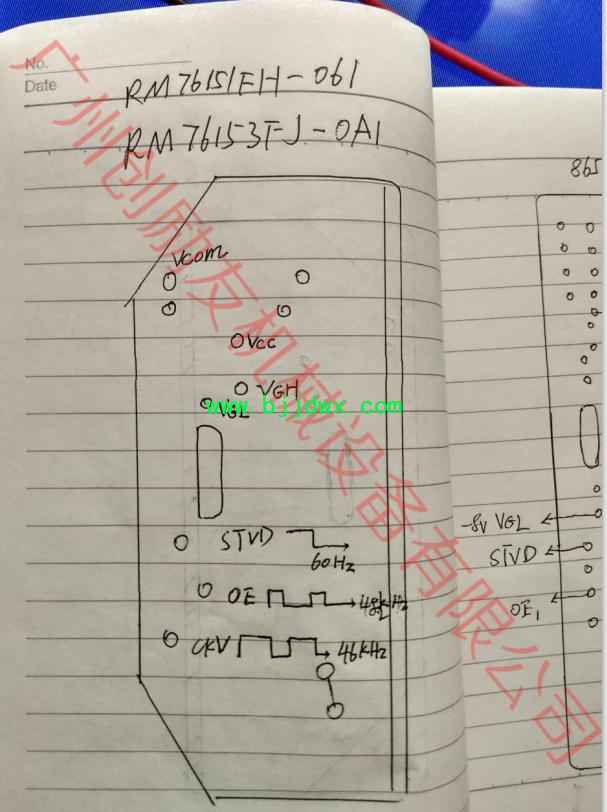 No.
Date
RM76151EH-061
RM76153FJ-0A1
Vcom
Vcc
VGH
VGL
www.bjjdwx.com
STVD
60Hz
OE
48kHz
CKV
46kHz
广州创励友机械设备有限公司
865
-8V VGL
STVD
OE1